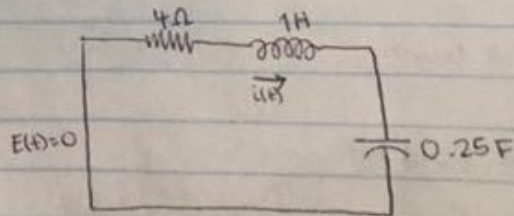 4Ω 1H
i(t)
E(t)=0 0.25F